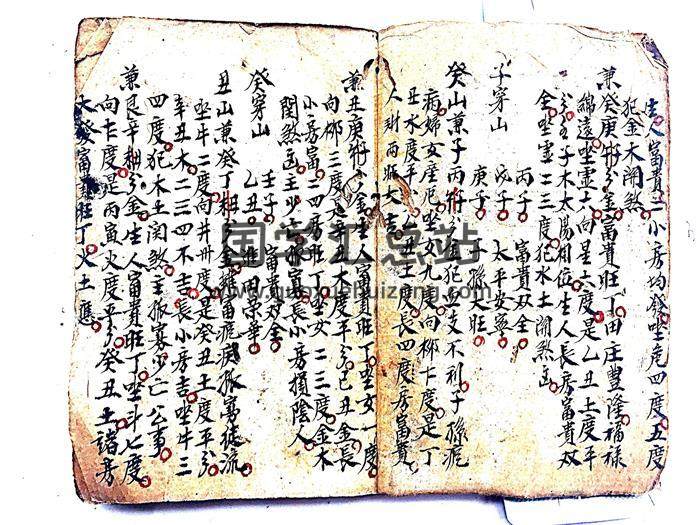 生人富貴二小房均發坐危四度五度
犯金木閗煞
兼癸庚子分金富貴旺丁田庄豊隆福祿
綿遠坐虛六度向星六度是乙丑土度平
分子木太陽相位生人長房富貴双
全坐虛二三度犯水土閗煞凶
子穿山
丙子 富貴双全
戊子 太平安寧
庚子 子孫大旺
癸山兼子丙子分金犯五支不利子孫疕
病婦女產厄坐女九度向柳七度是丁
丑水度平分丑土度長四度房富貴
人財両旺大吉
兼丑庚子分金生人富貴旺丁坐女一度
向柳三度是辛丑土度平分己丑金長
小房富二四房旺丁坐女二三度金木
閗煞凶主少亡孤寡長小房損陰人
癸穿山
壬子 富貴双全
乙丑 進田榮華
丑山兼癸丁丑分金瘟瘟疾孤寡徒流
坐牛二度向井卅度是癸丑土度平分
辛丑木二三四不吉長小房吉坐牛三
四度犯木土閗煞主孤寡少亡公事
兼艮辛丑分金生人富貴旺丁坐斗七度
向七度是丙寅火度平分癸丑土諸房
大發富貴旺丁火土應
国学汇总站
www.guoxuehuizong.com